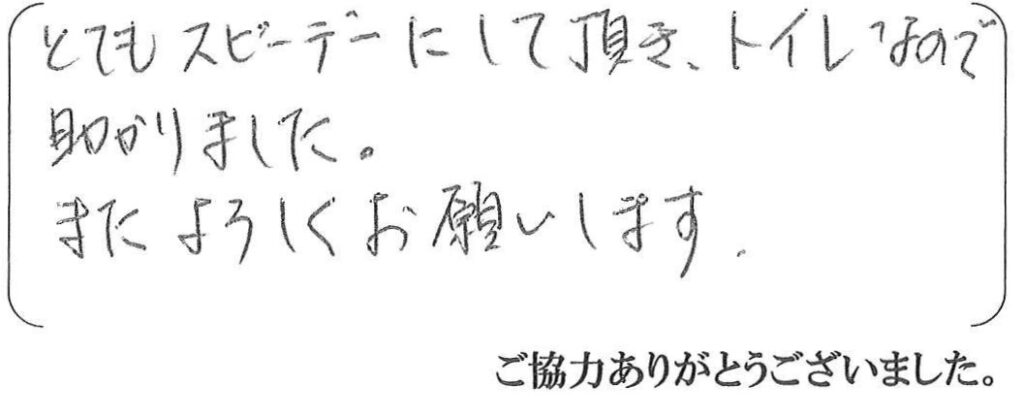 とてもスピーデーにして頂き、トイレなので
助かりました。
またよろしくお願いします.
ご協力ありがとうございました。